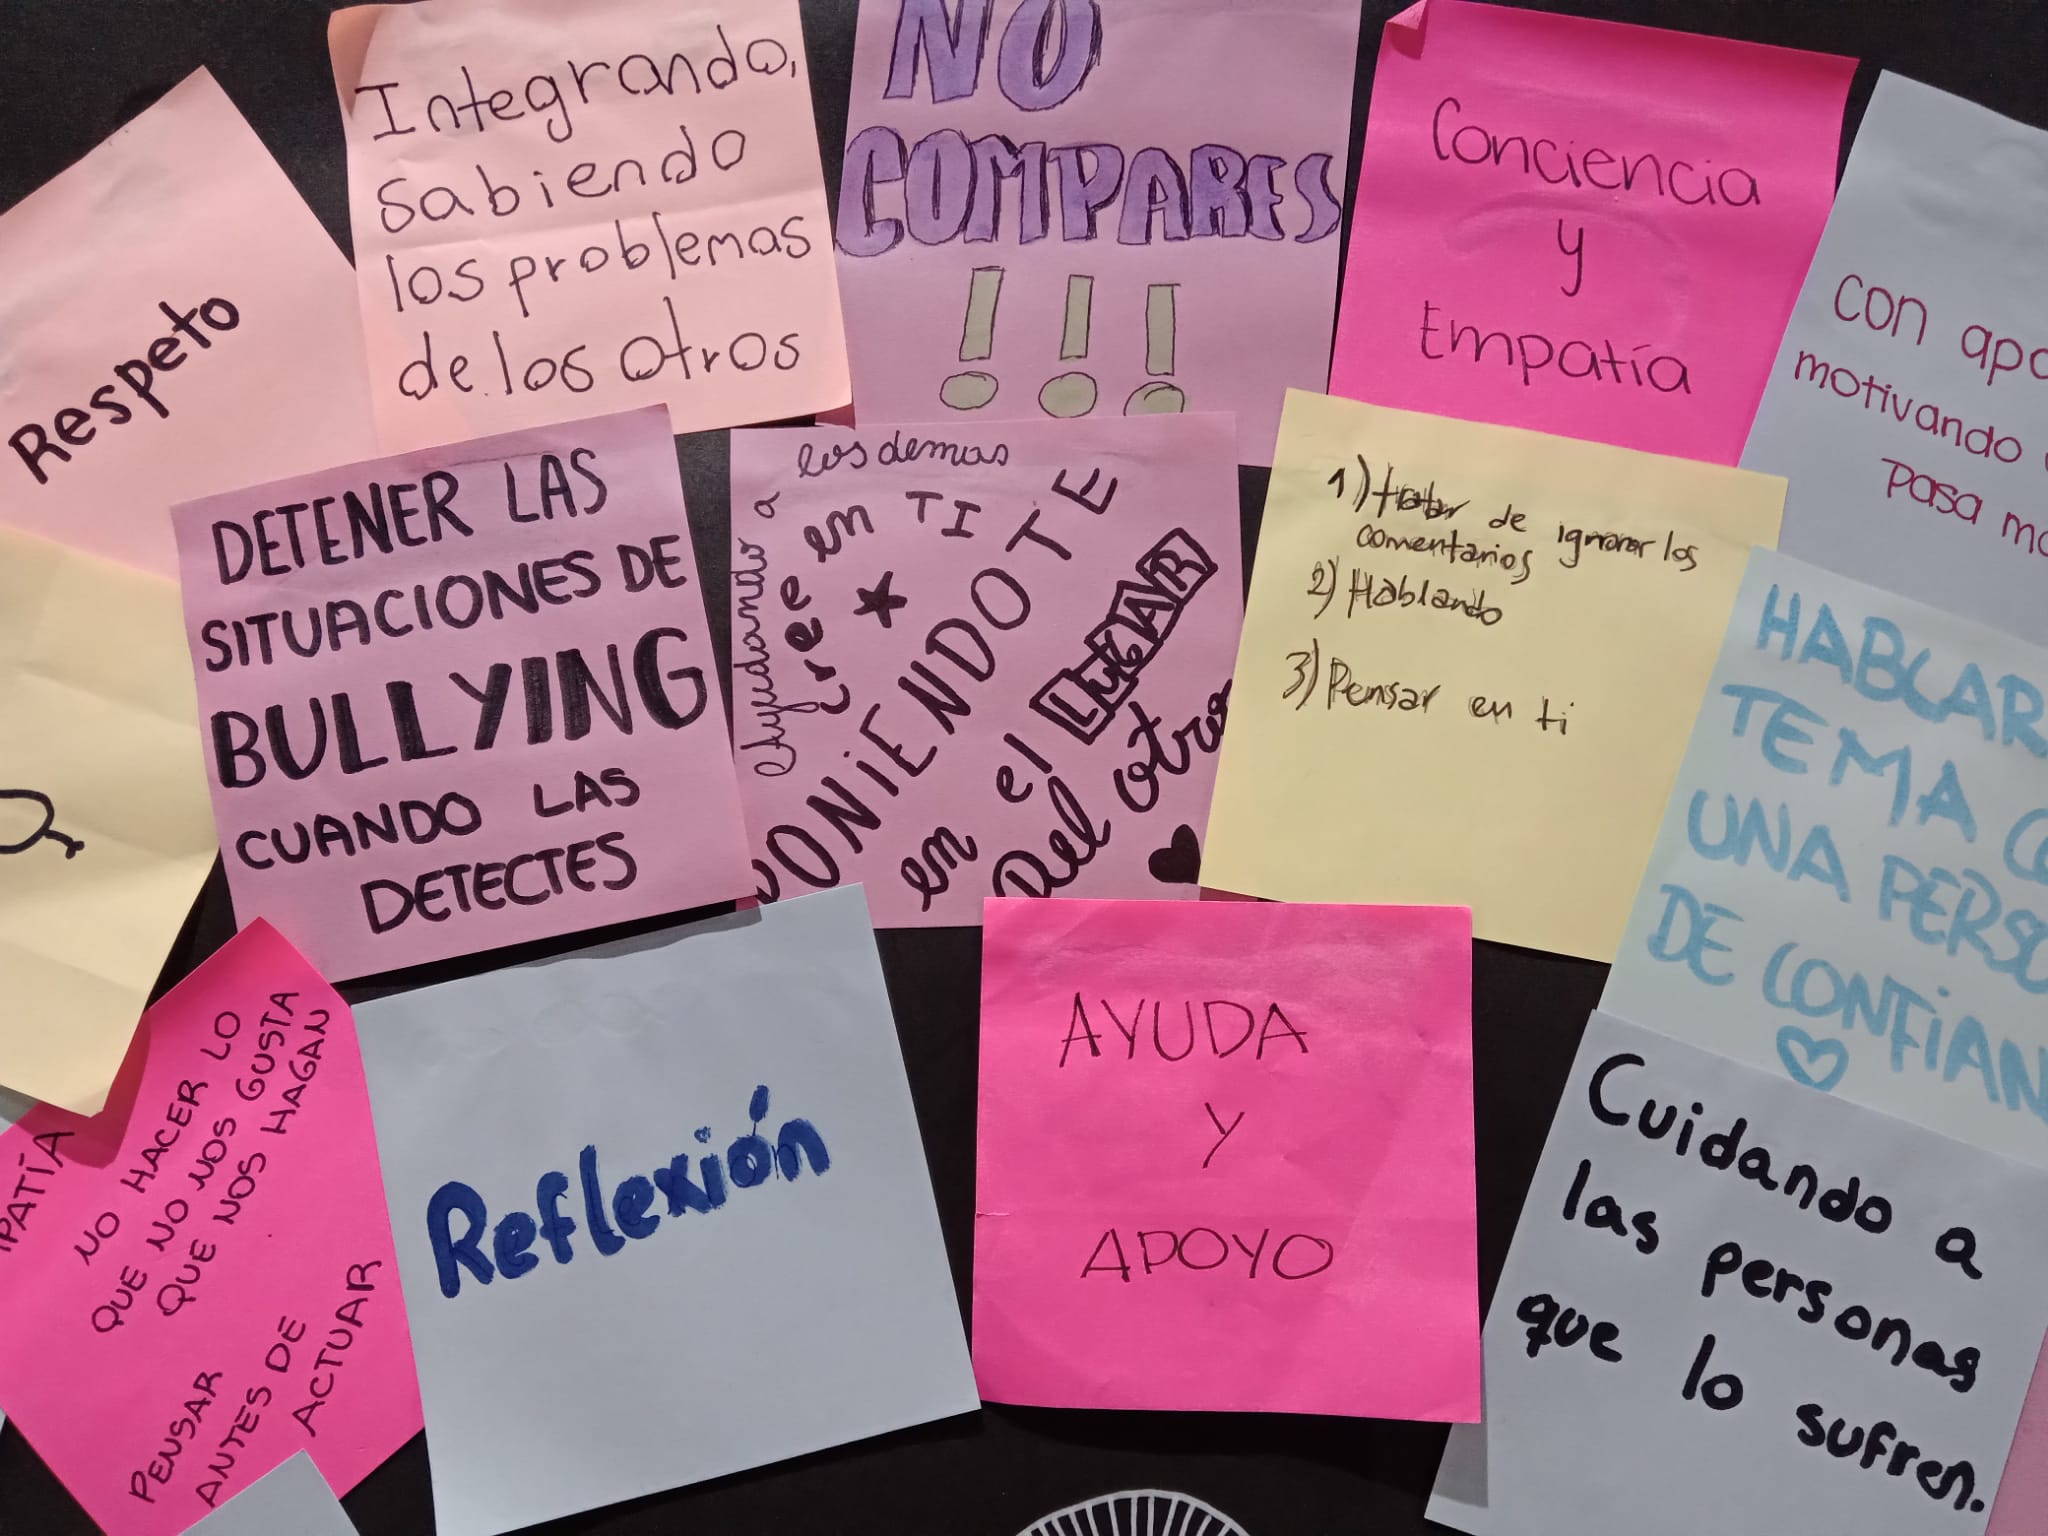 Respeto
Integrando,
sabiendo
los problemas
de los otros
NO
COMPARES
!!!
Conciencia
y
Empatía
con
motivando
pasa
DETENER LAS
SITUACIONES DE
BULLYING
CUANDO LAS
DETECTES
Ayudando a los demas
cree en TI
PONIENDOTE
en el LUGAR
Del otro
1) tratar de ignorar los
comentarios
2) Hablando
3) Pensar en ti
HABLAR
TEMA
UNA
DE
NO HACER LO
QUE NO NOS GUSTA
QUE NOS HAGAN
PENSAR
ANTES DE
ACTUAR
Reflexión
AYUDA
Y
APOYO
Cuidando a
las personas
que lo sufren.